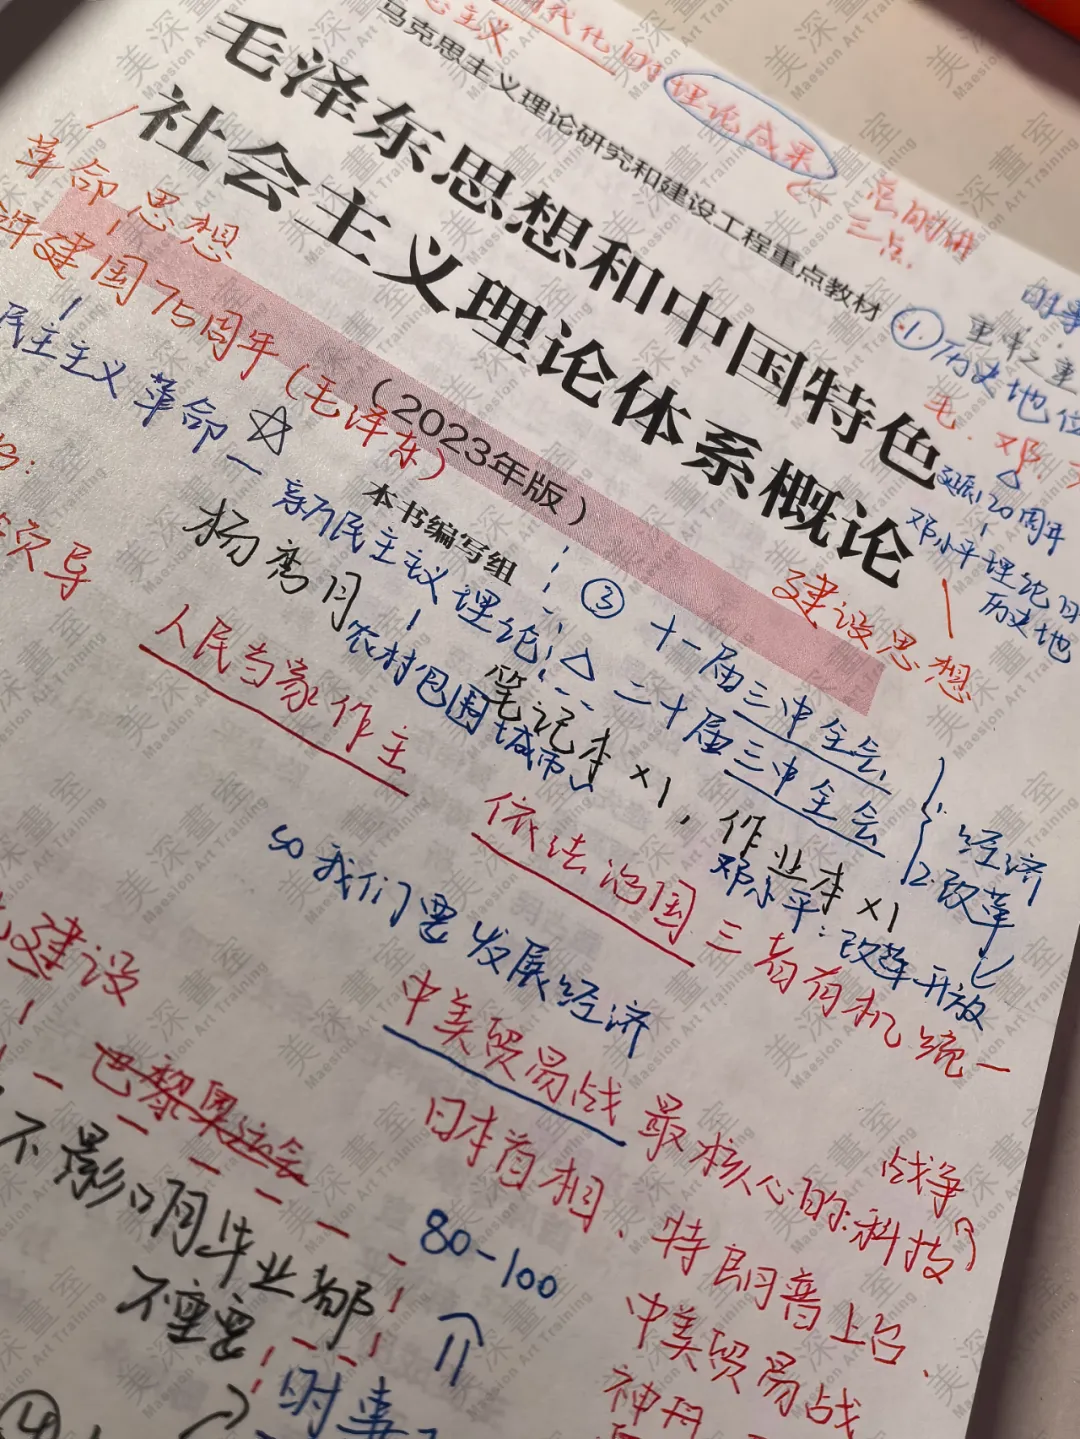 代化的
主义
理论成果
马克思主义理论研究和建设工程重点教材
总的讲
三点
毛泽东思想和中国特色
社会主义理论体系概论
(2023年版)
本书编写组
革命思想
建国75周年(毛泽东)
民主主义革命
新民主主义理论
农村包围城市
①历史地位
重中之重
毛.邓.
诞辰120周年
邓小平理论
历史地
建设思想
杨秀月
笔记本×1,作业本×1
③十一届三中全会
二十届三中全会
1.经济
2.改革
邓小平:改革开放
导
人民当家作主
依法治国
三者有机统一
so我们要发展经济
建设
中美贸易战
最核心的:科技
战争
巴黎奥运会
日本首相、特朗普上台、
中美贸易战
神舟
不影响毕业都
不重要
80-100
个
时事
④
美深画室
Maesion Art Training